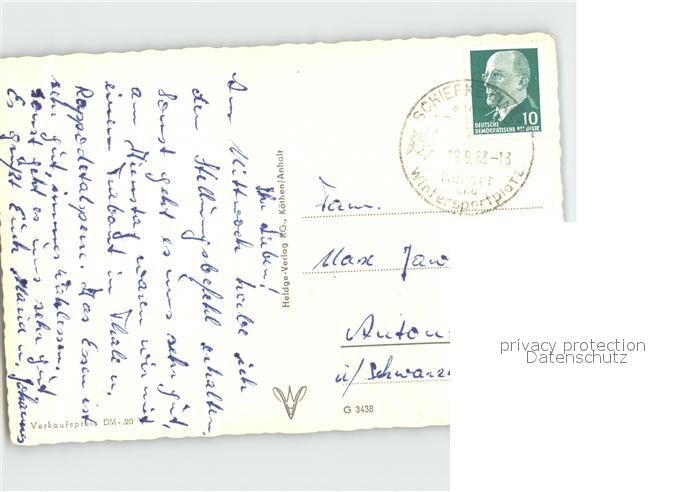 Ihr Lieben!
Am Mittwoch habe ich
den Stellungsbefehl erhalten.
Sonst geht es uns sehr gut,
am Dienstag waren wir mit
einem Trabant in Thale u.
Rappodetalsperre. Das Essen ist
sehr gut, immer
Sonst geht es uns sehr gut
Es grüßt Euch Maria u. Johannes
Verkaufspreis DM -.20
Heldge-Verlag KG., Köthen/Anhalt
G 3438
SCHIERKE
19.9.63-13
Kurort
und
Wintersportplatz
10
DEUTSCHE
DEMOKRATISCHE REPUBLIK
Fam.
Max
Anton
ü/Schwarze
privacy protection
Datenschutz